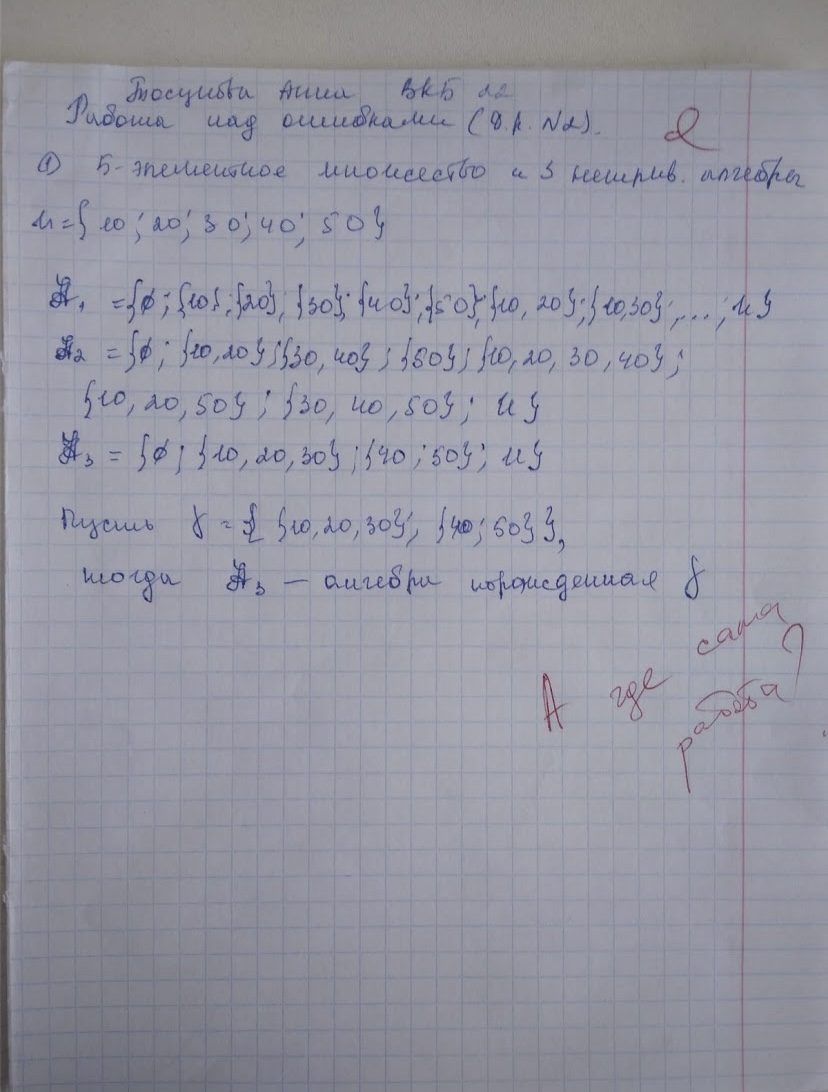 Анна ВКБ 22
Работа над ошибками (Д.р. №2).
2
① 5-элементное множество и 3 нетрив. алгебры
U={10; 20; 30; 40; 50}
A₁ ={∅; {10}; {20}; {30}; {40}; {50}; {10, 20}; {10,30}; ...; U}
A₂ ={∅; {10,20}; {30, 40}; {50}; {10, 20, 30, 40};
{10, 20, 50}; {30, 40, 50}; U}
A₃ = {∅; {10, 20, 30}; {40; 50}; U}
Пусть γ = { {10, 20, 30}; {40; 50} },
тогда A₃ — алгебра порожденная γ
А где сама
работа?